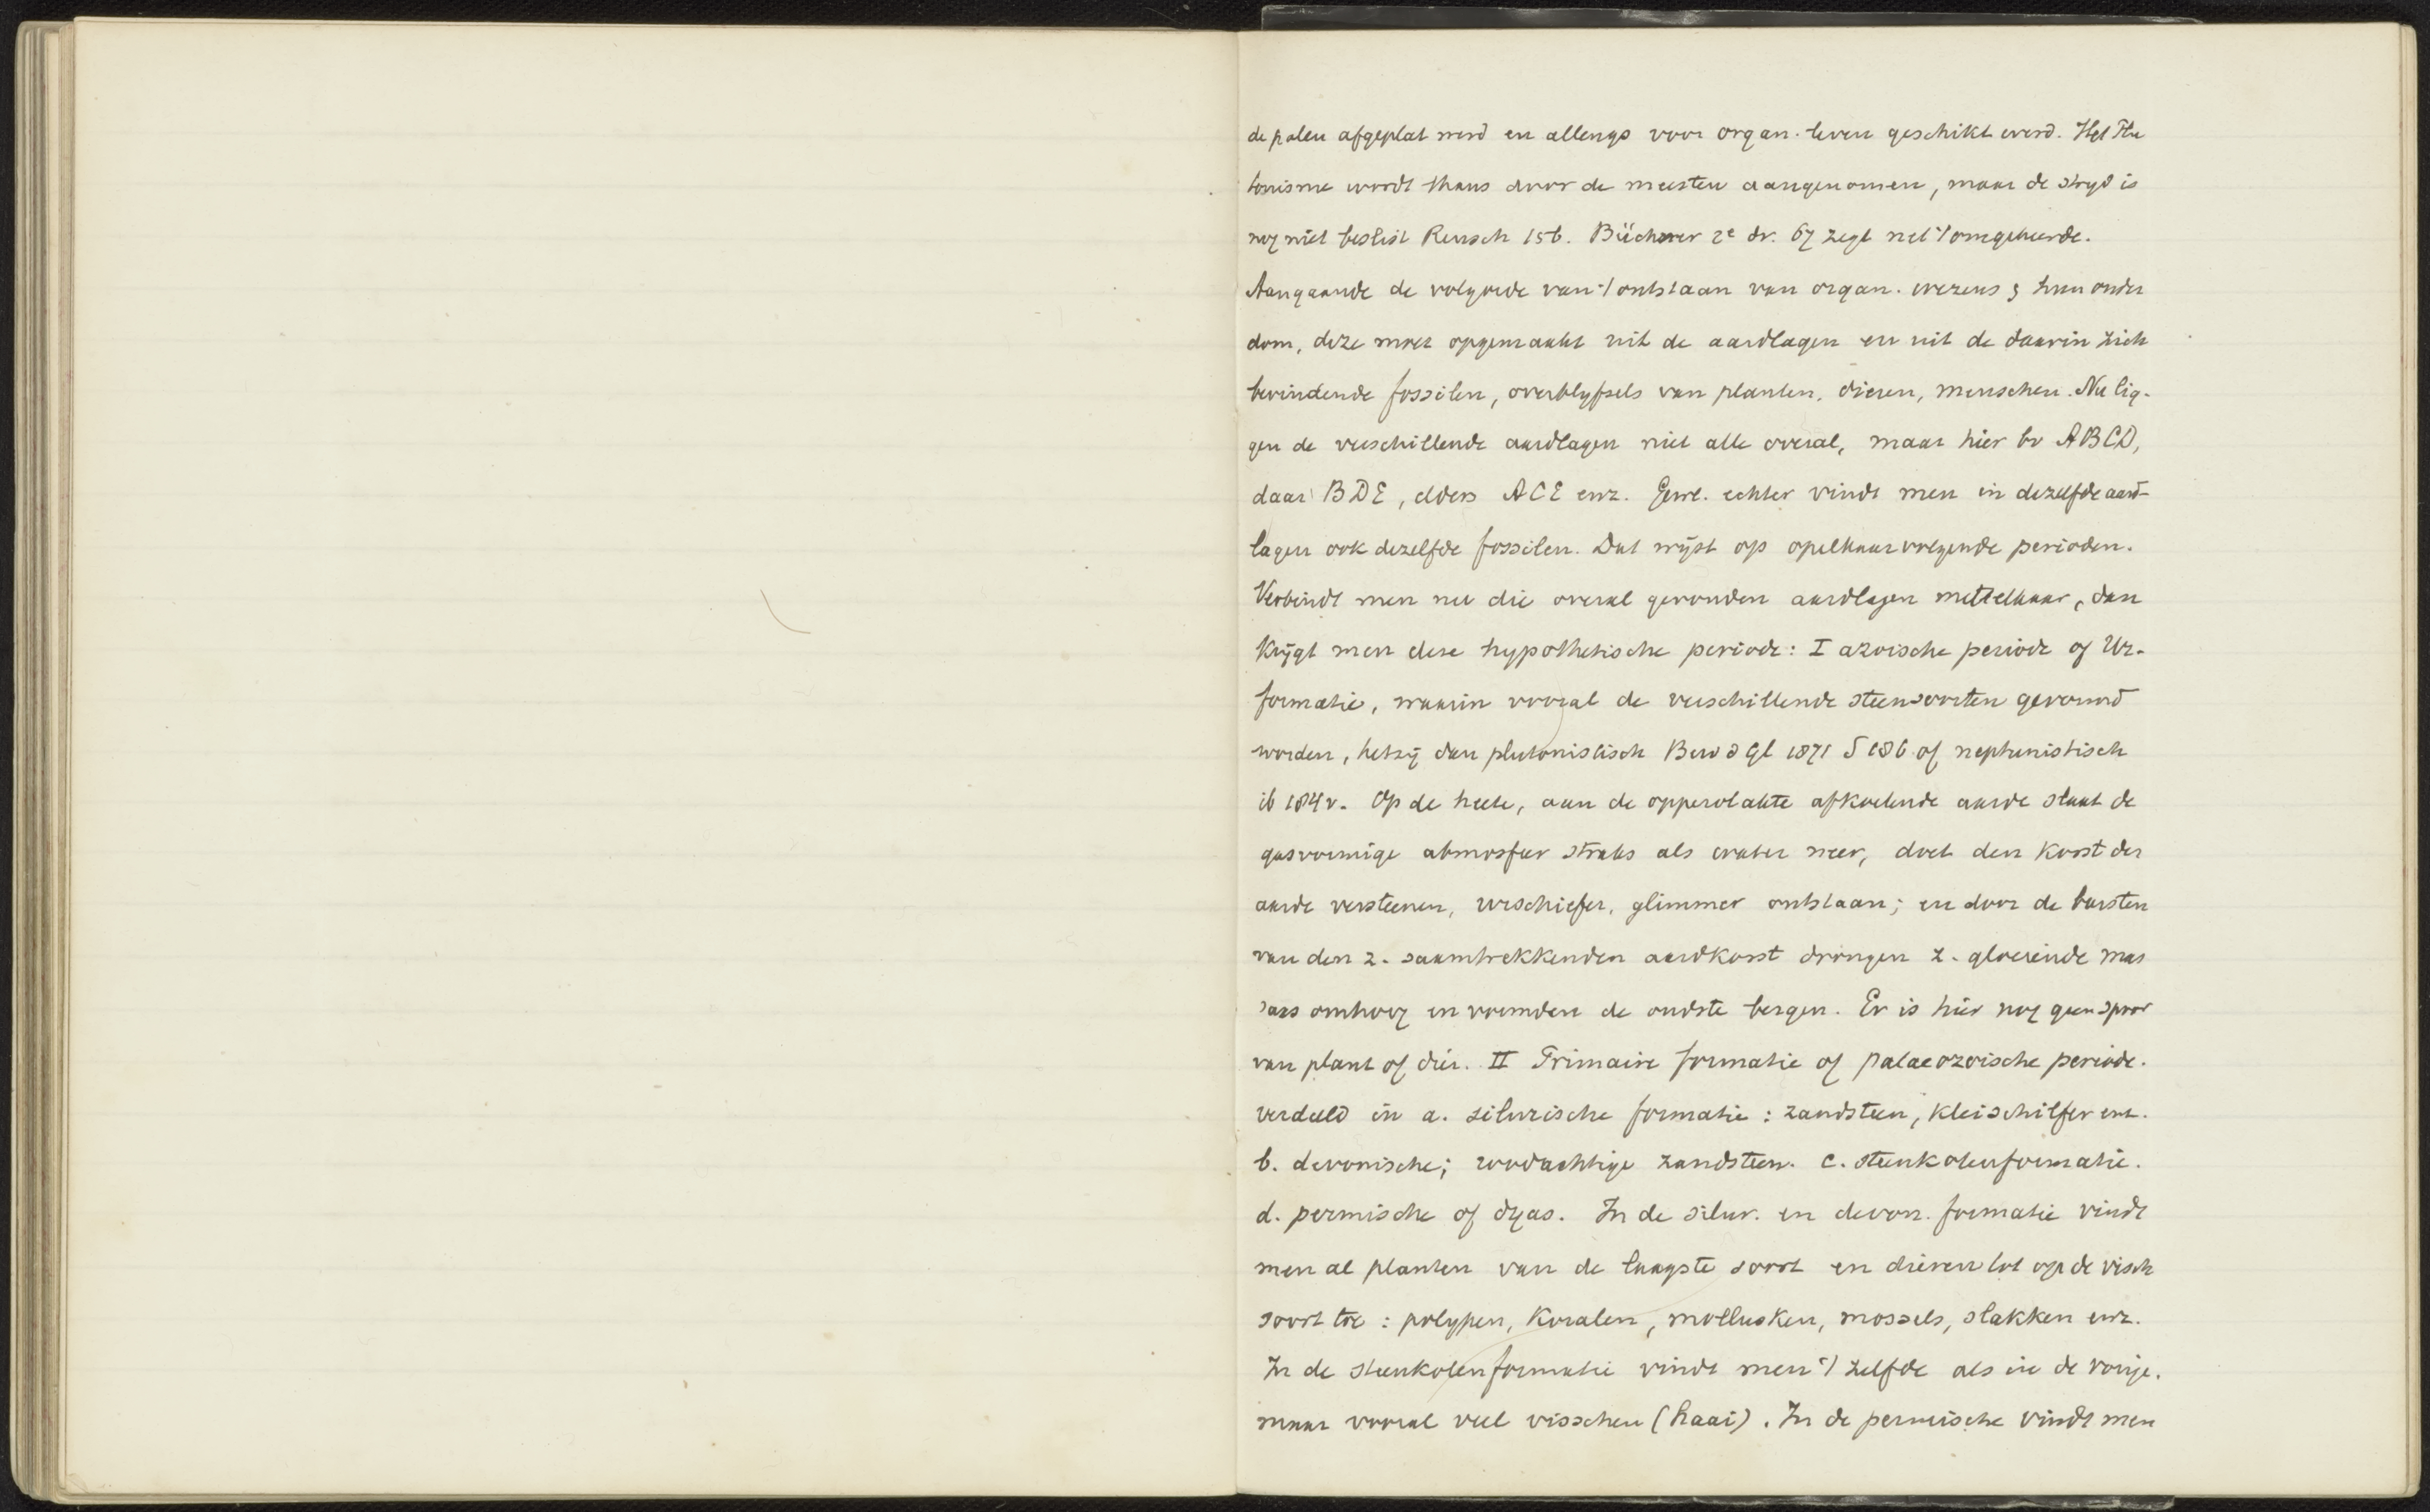 de polen afgeplat werd en allengs voor organ. leven geschikt werd. Het Plu
tonisme wordt thans door de meesten aangenomen, maar de stryd is
nog niet beslist Reusch 156. Büchner 2e dr. 67 zegt net 't omgekeerde.
Aangaande de volgorde van 't ontstaan van organ. wezens & hun ouder
dom, deze moet opgemaakt uit de aardlagen en uit de daarin zich
bevindende fossilen, overblyfsels van planten, dieren, menschen. Nu lig-
gen de verschillende aardlagen niet alle overal, maar hier bv ABCD,
daar BDE, elders ACE enz. Gew. echter vindt men in dezelfde aard-
lagen ook dezelfde fossilen. Dat wijst op opelkaarvolgende perioden.
Verbindt men nu die overal gevonden aardlagen mettelkaar, dan
krijgt men deze hypothetische periode: I azoische periode of Ur-
formatie, waarin vooral de verschillende steensoorten gevormd
worden, hetzij dan plutonistisch Bew d Gl 1871 S 186 of neptunistisch
ib 184v. Op de heete, aan de oppervlakte afkoelende aarde slaat de
gasvormige atmosfeer straks als water neer, doet den korst der
aarde versteenen, urschiefer, glimmer ontslaan; en door de barsten
van den z. saamtrekkenden aardkorst drongen z. gloeiende mas
saas omhoog en vormden de oudste bergen. Er is hier nog geen spoor
van plant of dier. II Primaire formatie of palaeozoische periode.
verdeeld in a. silurische formatie : zandsteen, kleischilfer enz.
b. devonische; roodachtige zandsteen. c. steenkolenformatie.
d. permische of dyas. In de silur. en devon. formatie vindt
men al planten van de laagste soort en dieren tot op de visch
soort toe : polypen, koralen, mollusken, mossels, slakken enz.
In de steenkolenformatie vindt men 't zelfde als in de vorige.
maar vooral veel visschen (haai). In de permische vindt men